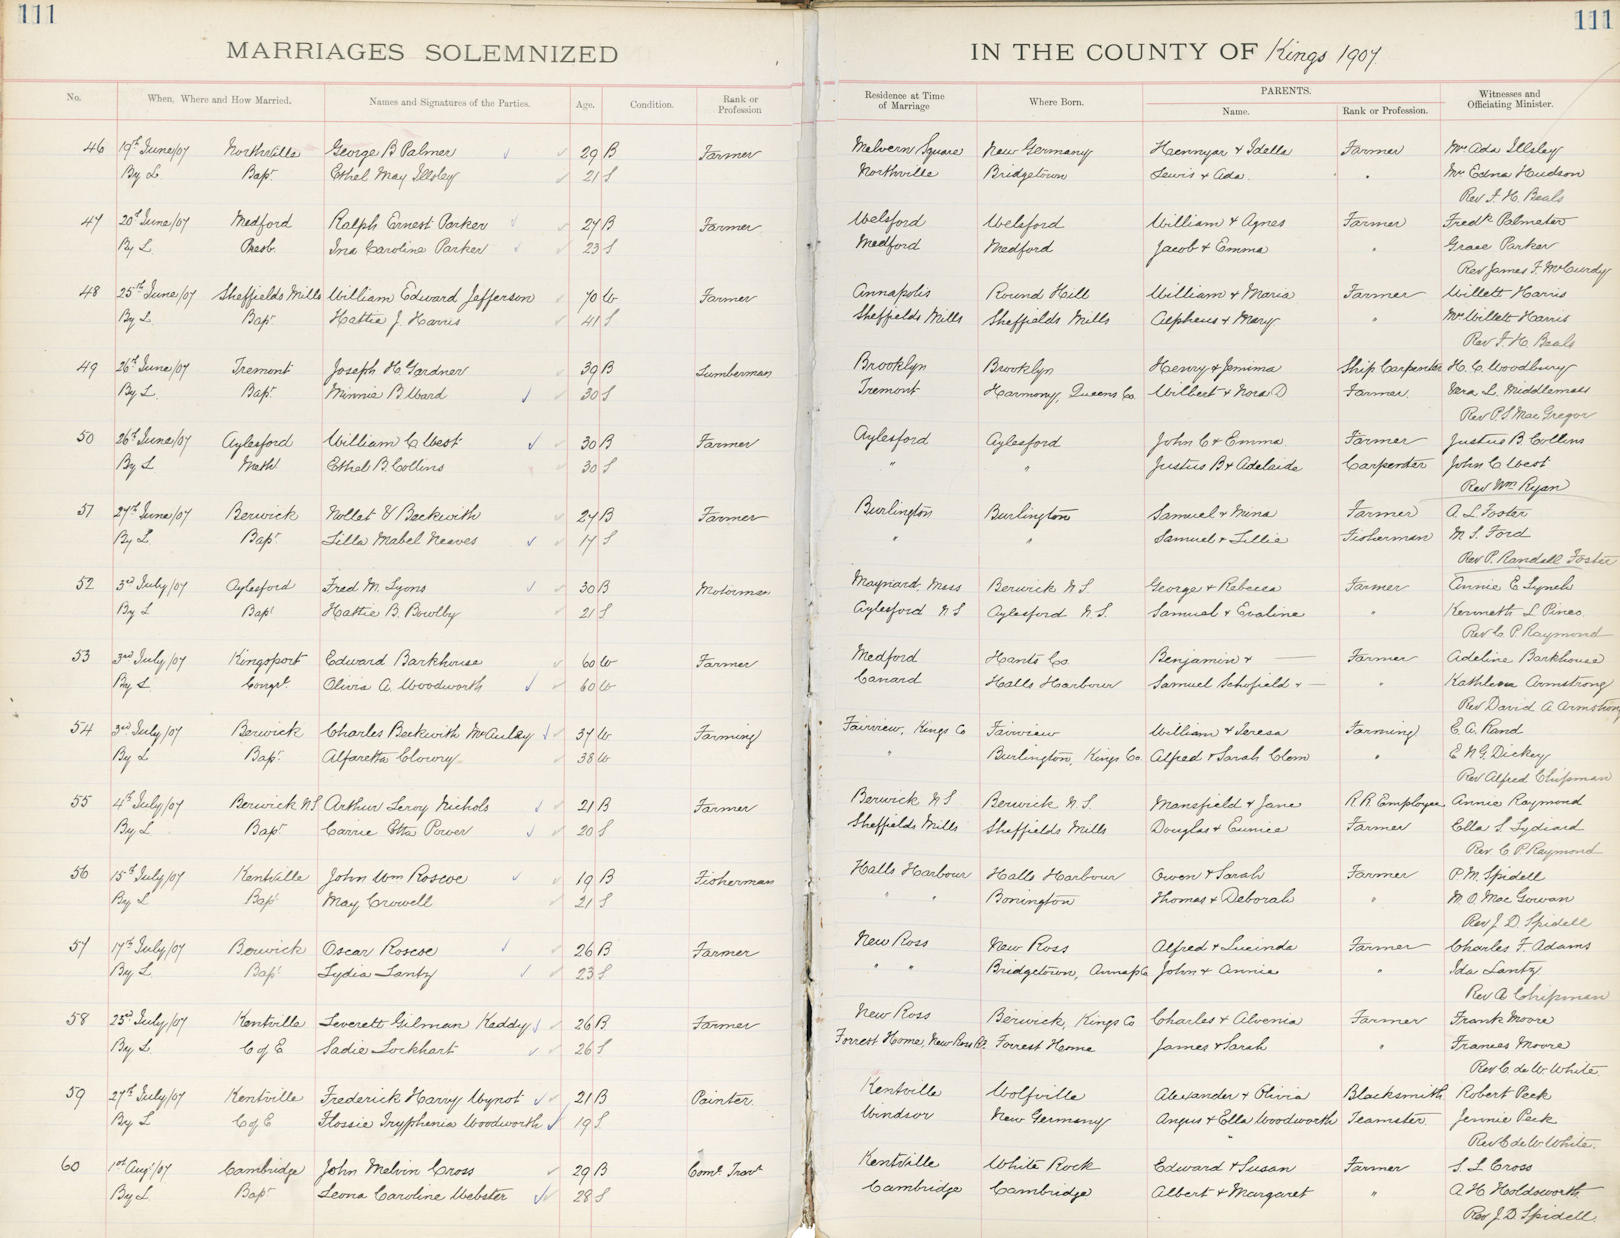 111
111
MARRIAGES SOLEMNIZED
IN THE COUNTY OF Kings 1907.
No. When, Where and How Married. Names and Signatures of the Parties. Age. Condition. Rank or Profession Residence at Time of Marriage Where Born. PARENTS. Name. Rank or Profession. Witnesses and Officiating Minister.
46 19th June/07 Northville George B Palmer 29 B Farmer Melvern Square New Germany & Idella Farmer Mrs Ada Illsley
By L Bapt. Ethel May Illsley 21 S Northville Bridgetown Lewis & Ada. " Mrs Edna Hudson
Rev F. H. Beals
47 20th June/07 Medford Ralph Ernest Parker 27 B Farmer Welsford Welsford William & Agnes Farmer Fredk Palmeter
By L Presb. Ina Caroline Parker 23 S Medford Medford Jacob & Emma " Grace Parker
Rev James F. McCurdy
48 25th June/07 Sheffields Mills William Edward Jefferson 70 W Farmer Annapolis Round Hill William & Maria Farmer Willett Harris
By L Bapt. Hattie J. Harris 41 S Sheffields Mills Sheffields Mills Alpheus & Mary " Mrs Willett Harris
Rev F. H. Beals
49 26th June/07 Tremont Joseph H. Gardner 39 B Lumberman Brooklyn Brooklyn Henry & Jemima Ship Carpenter H. C. Woodbury
By L. Bapt. Minnie B. Ward 30 S Tremont Harmony, Queens Co. Wilbert & Nora D Farmer. Vera L. Middlemass
Rev P S MacGregor
50 26th June/07 Aylesford William C West 30 B Farmer Aylesford Aylesford John C & Emma Farmer Justus B. Collins
By L Meth Ethel B. Collins 30 S " " Justus B & Adelaide Carpenter John C West
Rev Wm Ryan
51 27th June/07 Berwick V Beckwith 24 B Farmer Burlington Burlington Samuel & Mina Farmer A. L Foster
By L Bapt. Lilla Mabel Neaves 17 S " " Samuel & Lillie Fisherman M. S. Ford
Rev P. Randall Foster
52 3rd July/07 Aylesford Fred M. Lyons 30 B Motorman Maynard, Mass Berwick N S. George & Rebecca Farmer Annie E Lynch
By L Bapt Hattie B. Bowlby 21 S Aylesford N S Aylesford N. S. Samuel & Evaline " Kenneth L Pineo
Rev C. P. Raymond
53 3rd July/07 Kingsport Edward Barkhouse 60 W Farmer Medford Hants Co. Benjamin & — Farmer Adeline Barkhouse
By L Congr'l. Olivia A. Woodworth 60 W Canard Halls Harbour Samuel Schofield & — " Kathleen Armstrong
Rev David A Armstrong
54 3rd July/07 Berwick Charles Beckwith McAulay 37 W Farming Fairview, Kings Co Fairview William & Teresa Farming E. A. Rand
By L Bapt. Alfaretta Clowry 38 W " Burlington, Kings Co. Alfred & Sarah Clem " E N G. Dickey
Rev Alfred Chipman
55 4th July/07 Berwick N S Arthur Leroy Nichols 21 B Farmer Berwick N S Berwick N. S. Mansfield & Jane R. R. Employee Annie Raymond
By L Bapt Carrie Etta Power 20 S Sheffields Mills Sheffields Mills Douglas & Eunice Farmer Ella S. Lydiard
Rev C P. Raymond
56 15th July/07 Kentville John Wm Roscoe 19 B Fisherman Halls Harbour Halls Harbour Owen & Sarah Farmer P. M. Spidell
By L Bapt May Crowell 21 S " " Bonington Thomas & Deborah " M. O. MacGowan
Rev J. D. Spidell
57 17th July/07 Berwick Oscar Roscoe 26 B Farmer New Ross New Ross Alfred & Lucinda Farmer Charles F. Adams
By L. Bapt Lydia Lantz 23 S " " Bridgetown, Annap Co John & Annie " Ida Lantz
Rev A Chipman
58 23d July/07 Kentville Leverett Gilman Keddy 26 B Farmer New Ross Berwick, Kings Co Charles & Alvenia Farmer Frank Moore
By L C of E Sadie Lockhart 26 S Forrest Home, New Ross Rd. Forrest Home James & Sarah " Frances Moore
Rev C de W. White
59 27th July/07 Kentville Frederick Harry Wynot 21 B Painter. Kentville Wolfville Alexander & Olivia Blacksmith Robert Peck
By L C of E Flossie Tryphenia Woodworth 19 S Windsor New Germany Angus & Ella Woodworth Teamster Jennie Peck
Rev C de W. White.
60 1st Aug/07 Cambridge John Melvin Cross 29 B Coml. Travr Kentville White Rock Edward & Susan Farmer S. L Cross
By L. Bapt Leona Caroline Webster 28 S Cambridge Cambridge Albert & Margaret " A H Holdsworth
Rev J. D. Spidell.